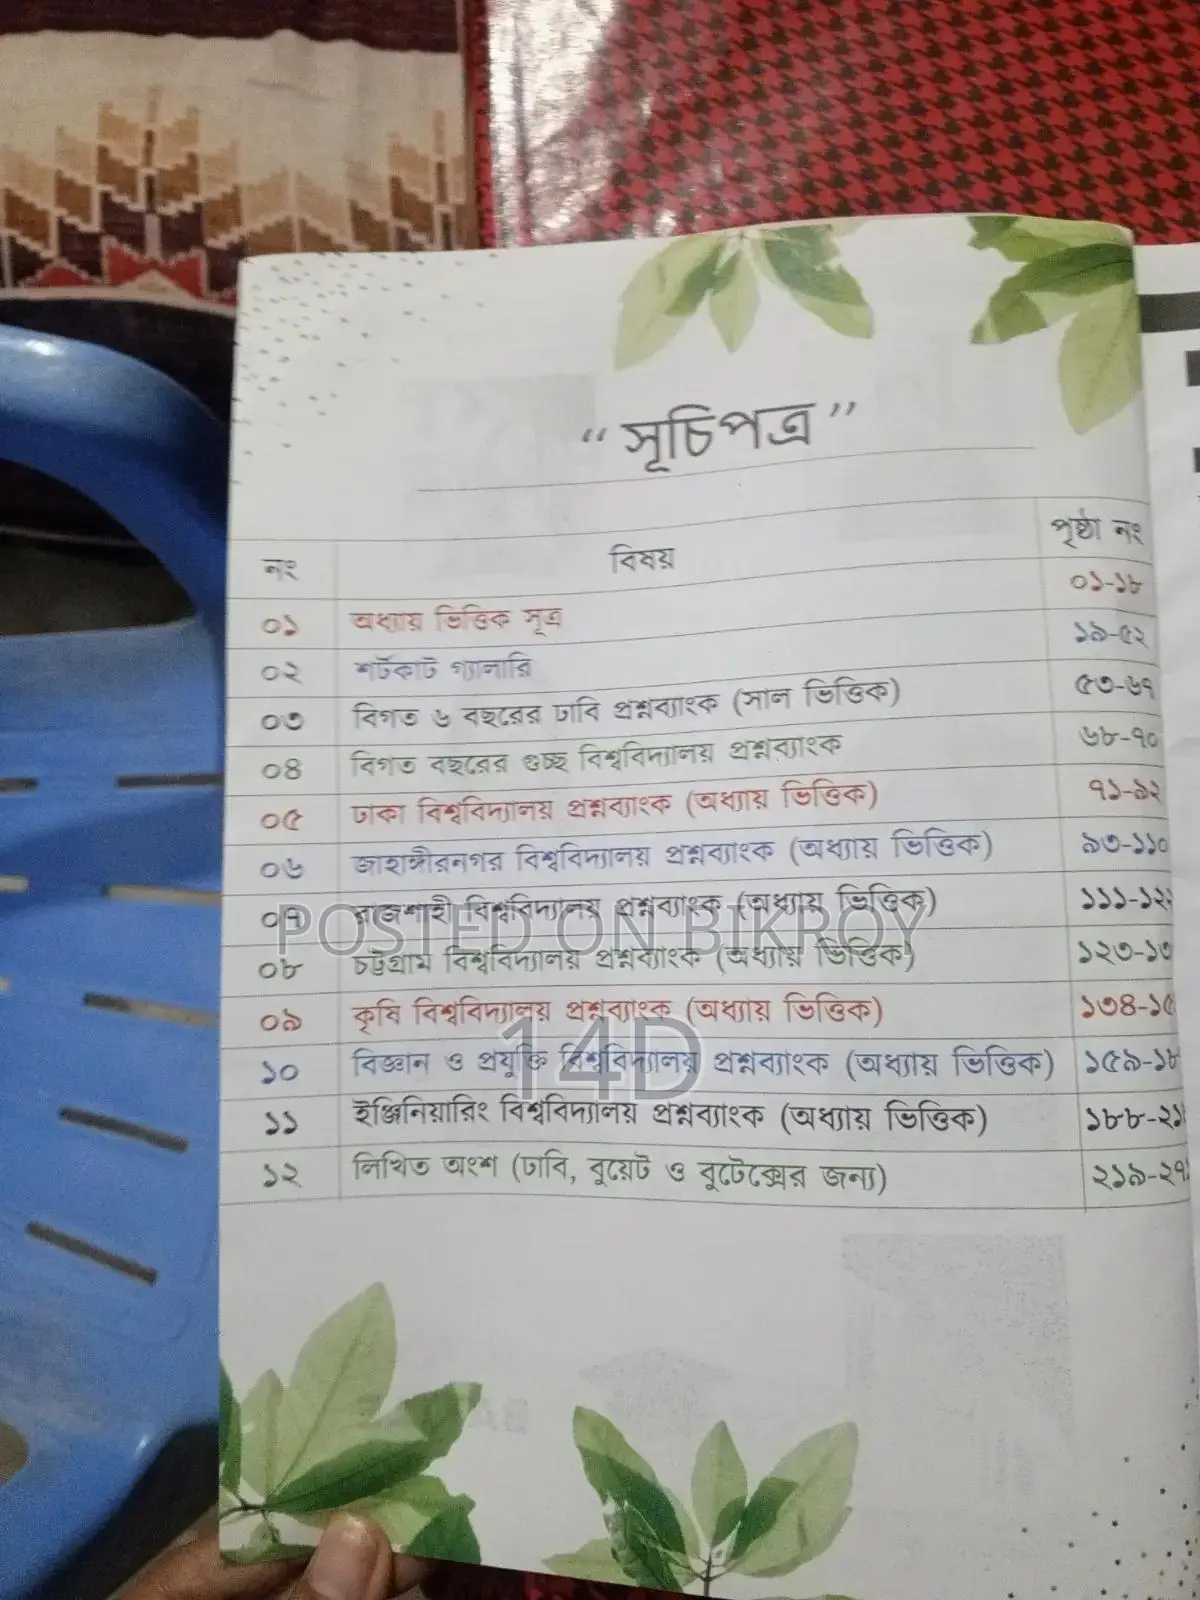 “সূচিপত্র”
নং বিষয় পৃষ্ঠা নং
০১ অধ্যায় ভিত্তিক সূত্র ০১-১৮
০২ শর্টকাট গ্যালারি ১৯-৫২
০৩ বিগত ৬ বছরের ঢাবি প্রশ্নব্যাংক (সাল ভিত্তিক) ৫৩-৬৭
০৪ বিগত বছরের গুচ্ছ বিশ্ববিদ্যালয় প্রশ্নব্যাংক ৬৮-৭০
০৫ ঢাকা বিশ্ববিদ্যালয় প্রশ্নব্যাংক (অধ্যায় ভিত্তিক) ৭১-৯২
০৬ জাহাঙ্গীরনগর বিশ্ববিদ্যালয় প্রশ্নব্যাংক (অধ্যায় ভিত্তিক) ৯৩-১১০
০৭ রাজশাহী বিশ্ববিদ্যালয় প্রশ্নব্যাংক (অধ্যায় ভিত্তিক) ১১১-১২
POSTED ON BIKROY
০৮ চট্টগ্রাম বিশ্ববিদ্যালয় প্রশ্নব্যাংক (অধ্যায় ভিত্তিক) ১২৩-১৩
০৯ কৃষি বিশ্ববিদ্যালয় প্রশ্নব্যাংক (অধ্যায় ভিত্তিক) ১৩৪-১৫
14D
১০ বিজ্ঞান ও প্রযুক্তি বিশ্ববিদ্যালয় প্রশ্নব্যাংক (অধ্যায় ভিত্তিক) ১৫৯-১৮
১১ ইঞ্জিনিয়ারিং বিশ্ববিদ্যালয় প্রশ্নব্যাংক (অধ্যায় ভিত্তিক) ১৮৮-২১
১২ লিখিত অংশ (ঢাবি, বুয়েট ও বুটেক্সের জন্য) ২১৯-২৭